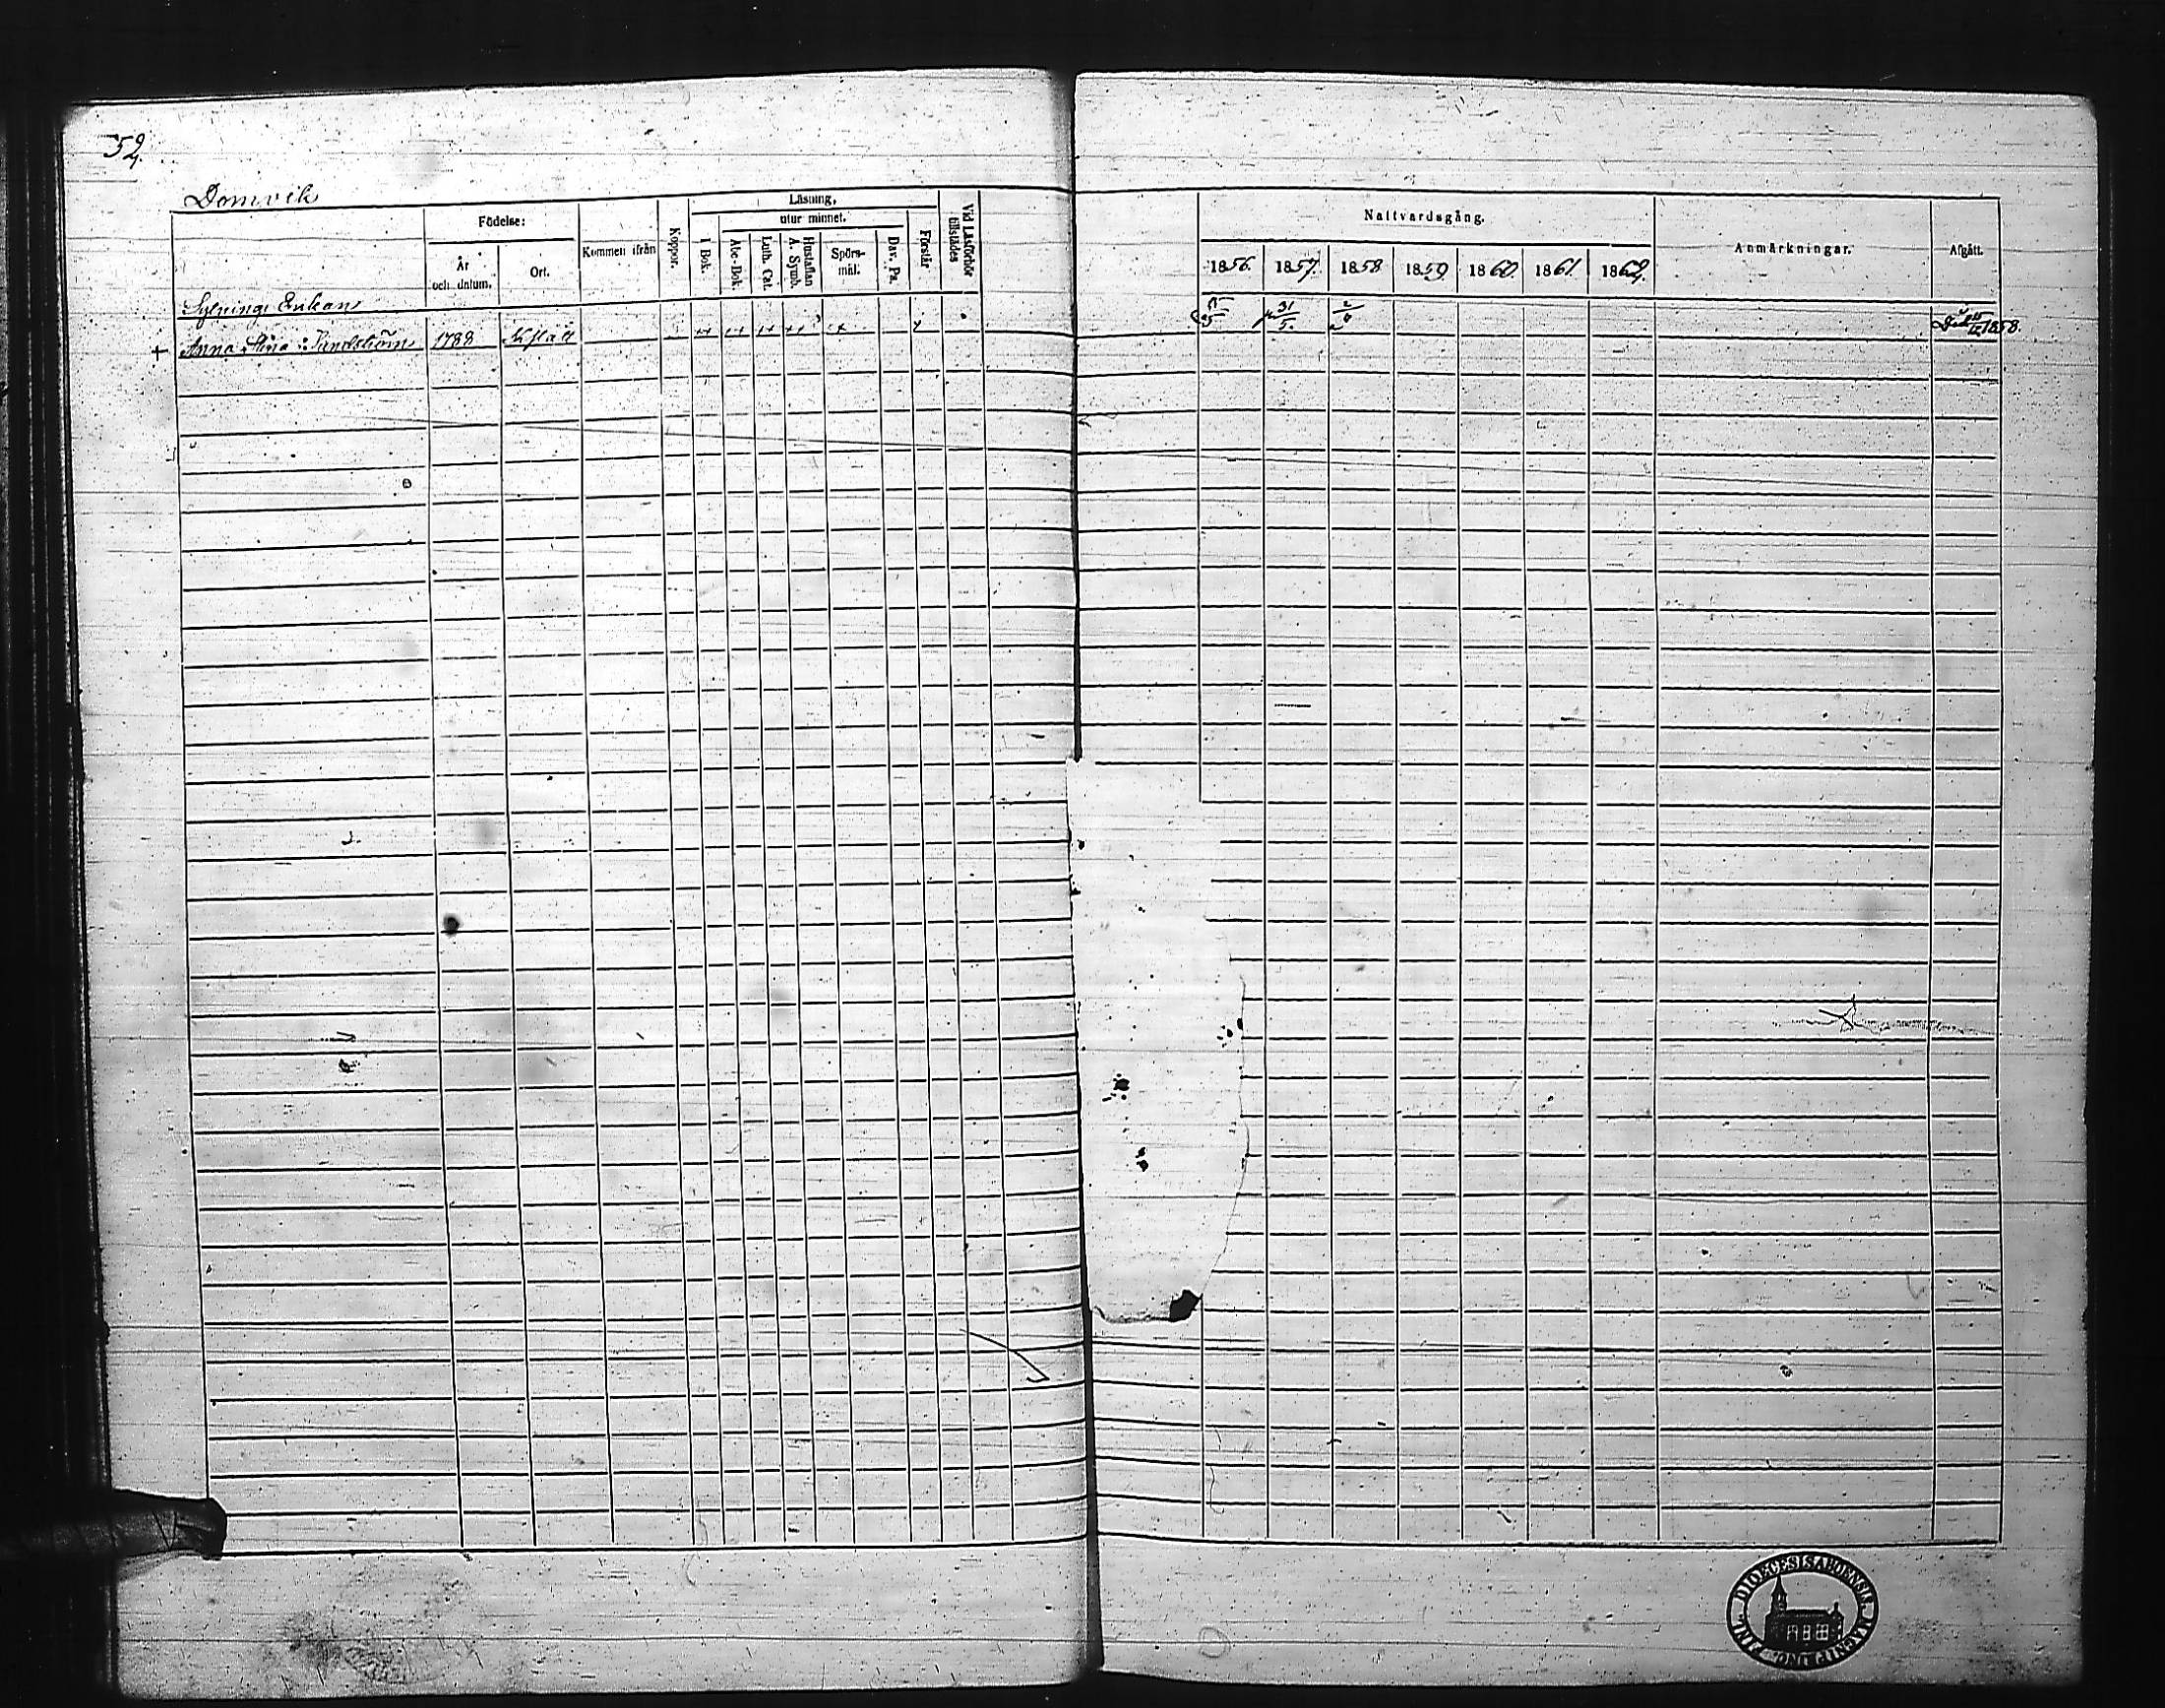 52.
Domvik
Födelse:
År och datum.
Ort.
Kommen ifrån
Koppor.
Läsning,
I Bok.
utur minnet.
Abc-Bok.
Luth. Cat.
Hustaflan A. Symb.
Spörs-mål.
Dav. Ps.
Förstår
Vid Läsförhör tillstädes
Sytnings Enkan
+ Anna Stina Sandström 1788
Nattvardsgång.
1856. 1857. 1858 1859 1860. 1861. 1862.
31/5.
Anmärkningar.
Afgått.
1858.
DIOECESIS ABOENSIS